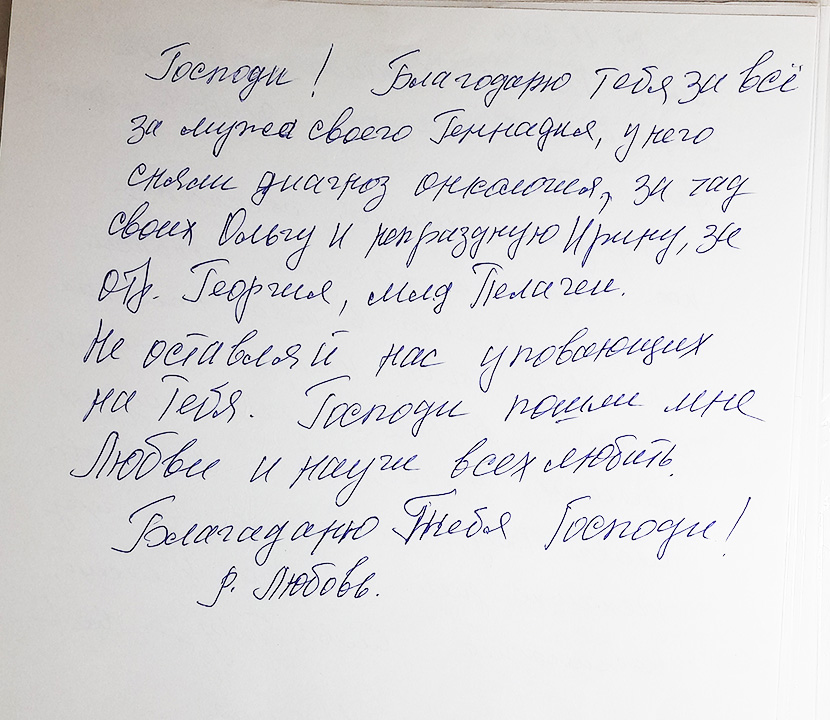 Господи! Благодарю Тебя за всё
за мужа своего Геннадия, у него
сняли диагноз онкология, за чад
своих Ольгу и непраздную Ирину, за
отр. Георгия, млд Пелагеи.
Не оставляй нас уповающих
на Тебя. Господи пошли мне
Любви и научи всех любить.
Благадарю Тебя Господи!
р. Любовь.